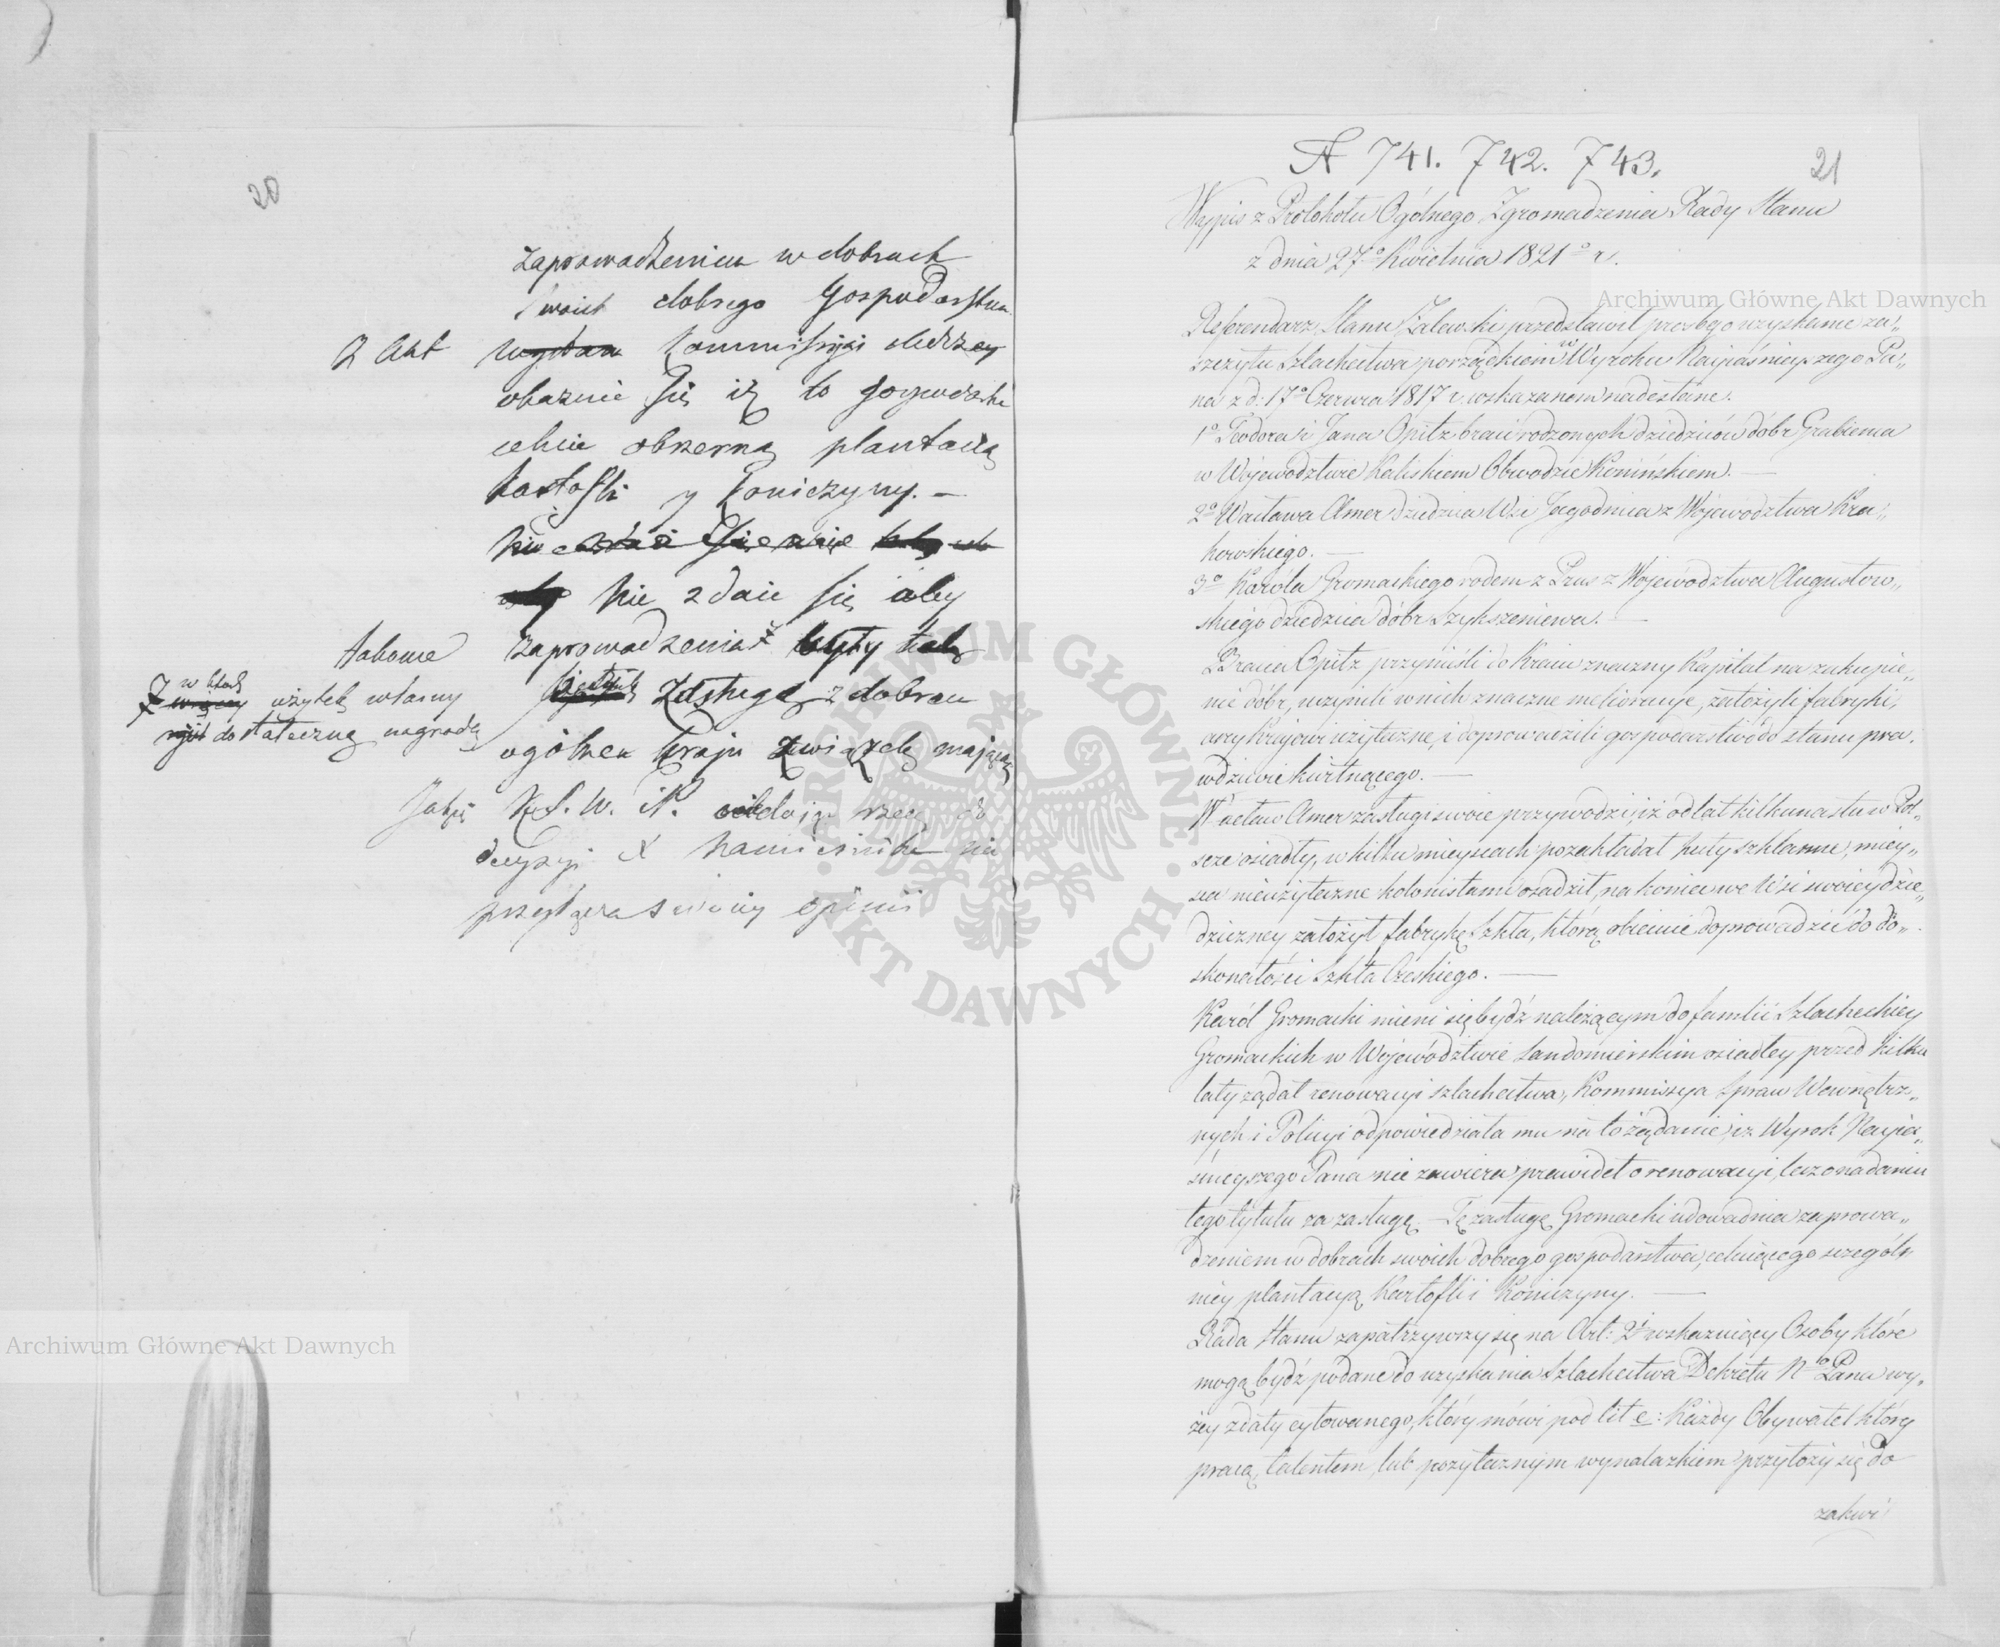 20
zaprowadzeniu w dobrach
swoich dobrego Gospodarstwa
Z Akt Kommissyi śledczey
okazuie się iż to gospodarskie
celuie obszerną plantacyą
Kartofli y Koniczyny. —
nie zdaie się aby
takowe zaprowadzenia były
w których użytek własny zasługę z dobrem
dostateczną nagrodą
ogólnem kraju związek mającą
K. S. W. i P. oddając rzecz
decyzyi X Namiestnika nie
przyłącza swoiey opinii
A 741. 742. 743.
21
Wypis z Protokołu Ogólnego Zgromadzenia Rady Stanu
z dnia 27º Kwietnia 1821º r.
Referendarz Stanu Zalewski przedstawił prośby o uzyskanie za„
szczytu Szlachectwa porządkiem w Wyroku Nayiaśnieyszego Pa„
na z d: 17º Czerwca 1817 r. wskazanem nadesłane.
1º Teodora i Jana Opitz braci rodzonych dziedziców dóbr Grabienia
w Województwie Kaliskiem Obwodzie Konińskiem. —
2º Wacława Amer dziedzica Wsi Jagodnica z Województwa Kra„
kowskiego. —
3º Karóla Gromackiego rodem z Prus z Województwa Augustow„
skiego dziedzica dóbr Szykszeniewa. —
Bracia Opitz przynieśli do Kraiu znaczny Kapitał na zakupie„
nie dóbr, uczynili w nich znaczne melioracye, założyli fabryki,
Krajowi użyteczne, i doprowadzili gospodarstwo do stanu pra„
wdziwie kwitnącego. —
Wacław Amer zasługi swoie przywodzi, iż od lat kilkunastu w Pol„
szcze osiadły, w kilku mieyscach pozakładał huty szklanne, miey„
sca nieużyteczne kolonistami osadził, na koniec we Wsi swoiey dzie„
dziczney założył fabrykę Szkła, którą obiecuie doprowadzić do do„
skonałości Szkła Czeskiego. —
Karól Gromacki mieni się bydź należącym do familii Szlacheckiey
Gromackich w Województwie Sandomierskim osiadłey przed kilku
laty żądał renowacyi szlachectwa, Kommissya Spraw Wewnętrz„
nych i Policyi odpowiedziała mu na to żądanie, iż Wyrok Nayia„
śnieyszego Pana nie zawiera prawideł o renowacyi, lecz o nadaniu
tego tytułu za zasługę. — Tę zasługę Gromacki udowadnia zaprowa„
dzeniem w dobrach swoich dobrego gospodarstwa, celuiącego szczegól„
niey plantacyą Kartofli i Koniczyny. —
Rada Stanu zapatrzywszy się na Art: 2º wskazuiący Osoby które
mogą bydź podane do uzyskania Szlachectwa Dekretu N^o Pana wy„
żey z daty cytowanego, który mówi pod lit e: Każdy Obywatel który
pracą, talentem, lub pożytecznym wynalazkiem przyłoży się do
zakwi
Archiwum Główne Akt Dawnych
Archiwum Główne Akt Dawnych
ARCHIWUM GŁÓWNE · AKT DAWNYCH ·